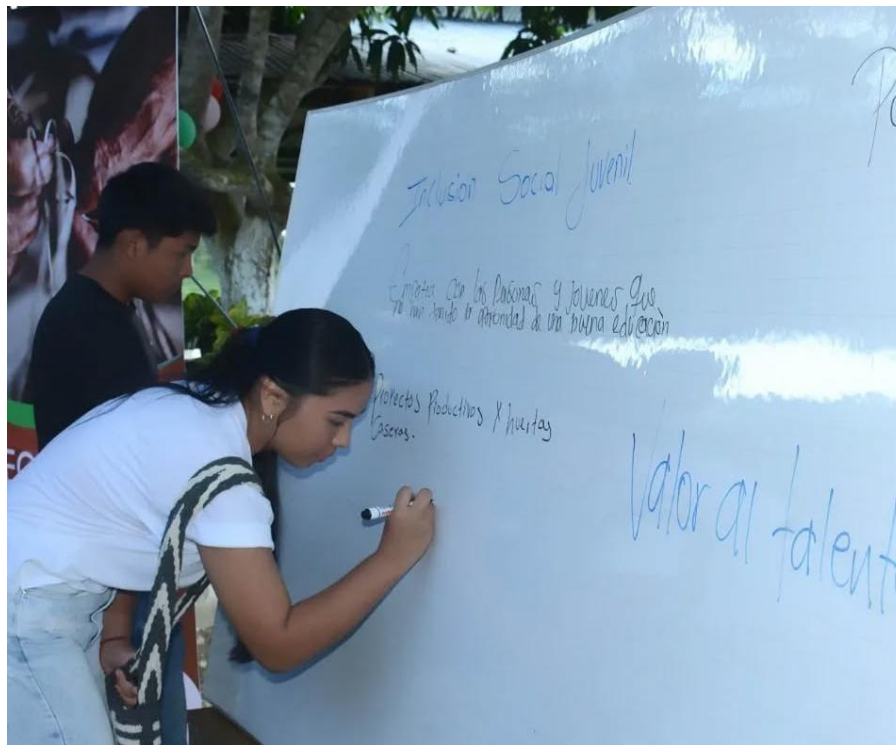 Inclusion Social Juvenil
Empatia con las Personas y Jovenes que
no han tenido la oportunidad de una buena educación
Proyectos Productivos y huertas
Caseras.
Valor al talent